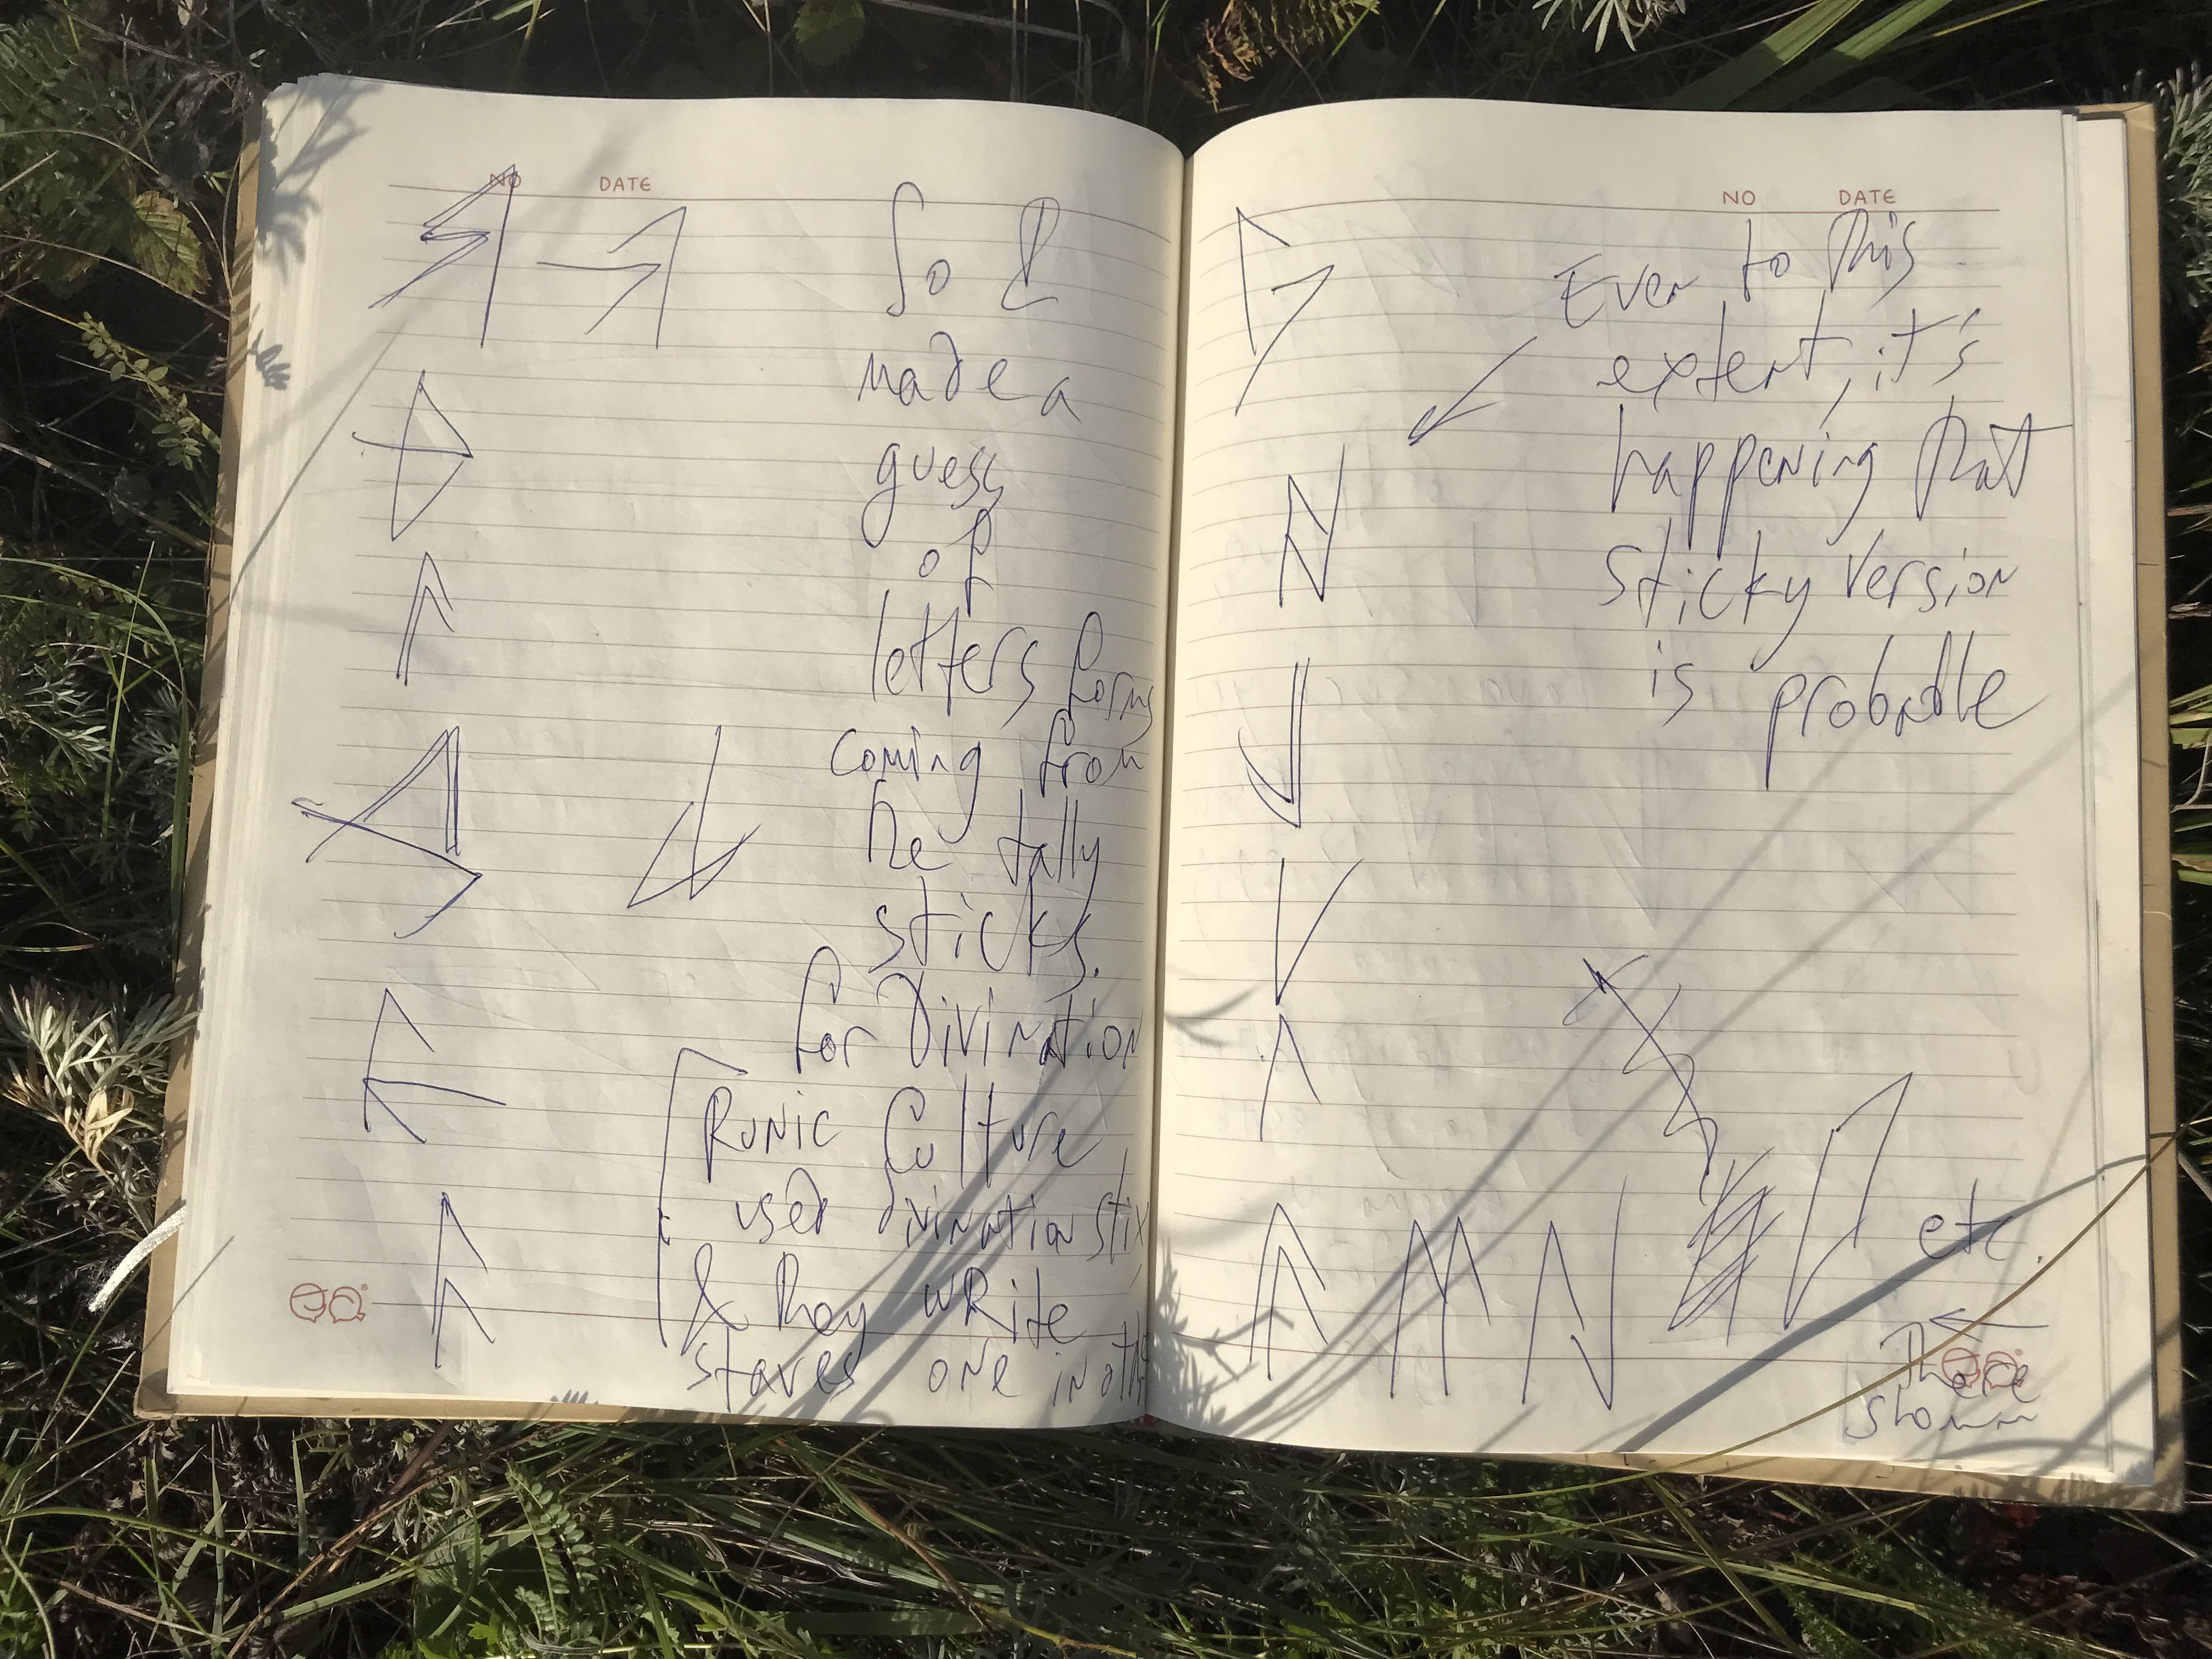 NO
DATE
So I
made a
guess
of
letters form
coming from
the tally
sticks.
For Divination
Runic Culture
used divination stix
& they write
staves one in othr
NO
DATE
Even to this
extent, it's
happening that
sticky version
is probable
etc
those
shown